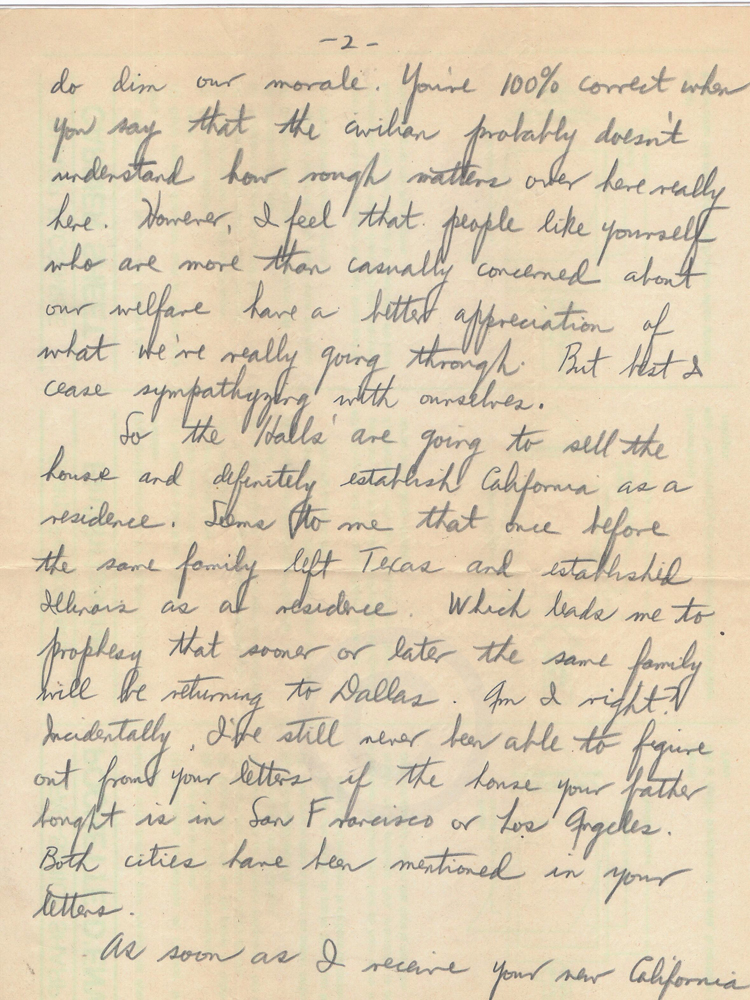 -2-
do dim our morale. You're 100% correct when
you say that the civilian probably doesn't
understand how rough matters over here really
here. However, I feel that people like yourself
who are more than casually concerned about
our welfare have a better appreciation of
what we're really going through. But best I
cease sympathyzing with ourselves.
So the Halls' are going to sell the
house and definitely establish California as a
residence. Seems to me that once before
the same family left Texas and established
Illinois as a residence. Which leads me to
prophesy that sooner or later the same family
will be returning to Dallas. Am I right?
Incidentally, I've still never been able to figure
out from your letters if the house your father
bought is in San Francisco or Los Angeles.
Both cities have been mentioned in your
letters.
As soon as I receive your new California